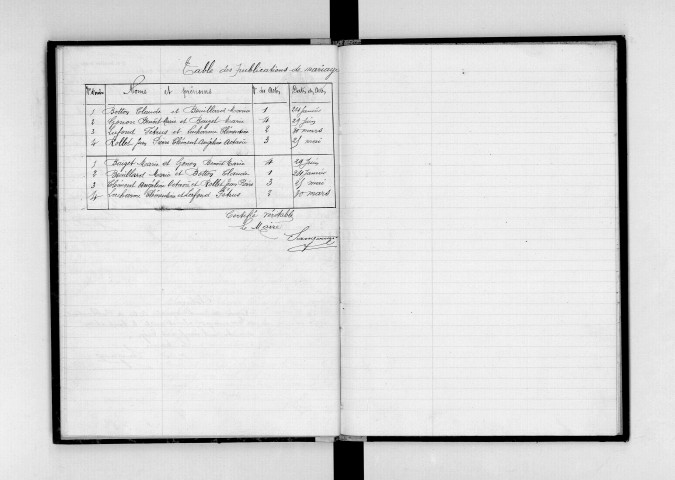 Table des publications de mariage
Nos d'ordre Noms et prénoms Nos des Actes Dates des Actes
1 Bottex Claude et Bouillard Marie 1 24 Janvier
2 Gonon Benoît Marie et Bayet Marie 4 29 Juin
3 Lafond Pétrus et Lacharme Clémentine 2 30 mars
4 Rollet Jean Pierre Clément Angéline Octavie 3 25 mai
1 Bayet Marie et Gonon Benoît Marie 4 29 Juin
2 Bouillard Marie et Bottex Claude 1 24 Janvier
3 Clément Angéline Octavie et Rollet Jean Pierre 3 25 mai
4 Lacharme Clémentine et Lafond Pétrus 2 30 mars
Certifié véritable
Le Maire